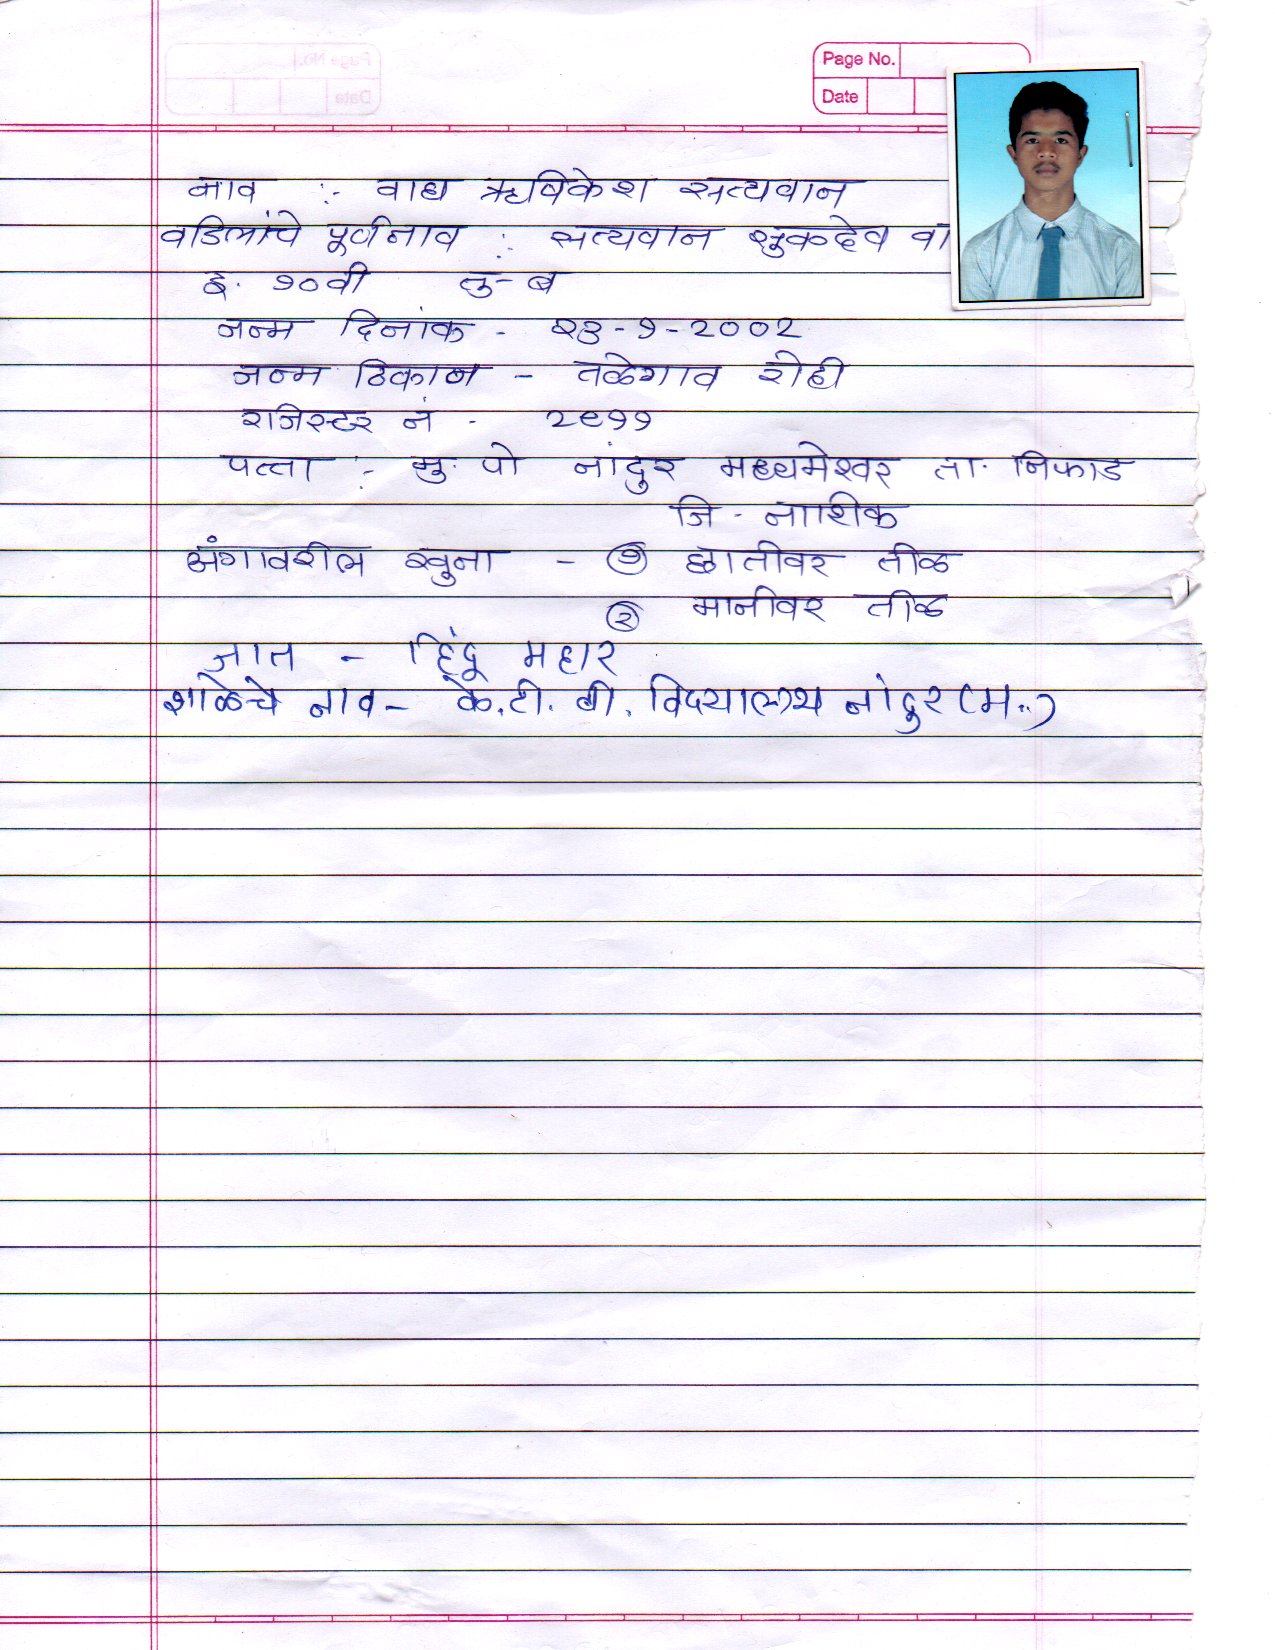 Page No.
Date
नाव :- वाघ ऋषिकेश सत्यवान
वडिलांचे पूर्णनाव : सत्यवान शुकदेव वा
इ. १०वी तु-ब
जन्म दिनांक - २३-१-2002
जन्म ठिकान - तळेगाव रोही
रजिस्टर नं - 2९११
पत्ता :- मु. पो नांदुर मध्यमेश्वर ता. निफाड
जि - नाशिक
अंगावरील खुना - १ छातीवर तीळ
२ मानीवर तीळ
जात - हिंदू महार
शाळेचे नाव - के. टी. बी. विदयालय नांदुर (म.)